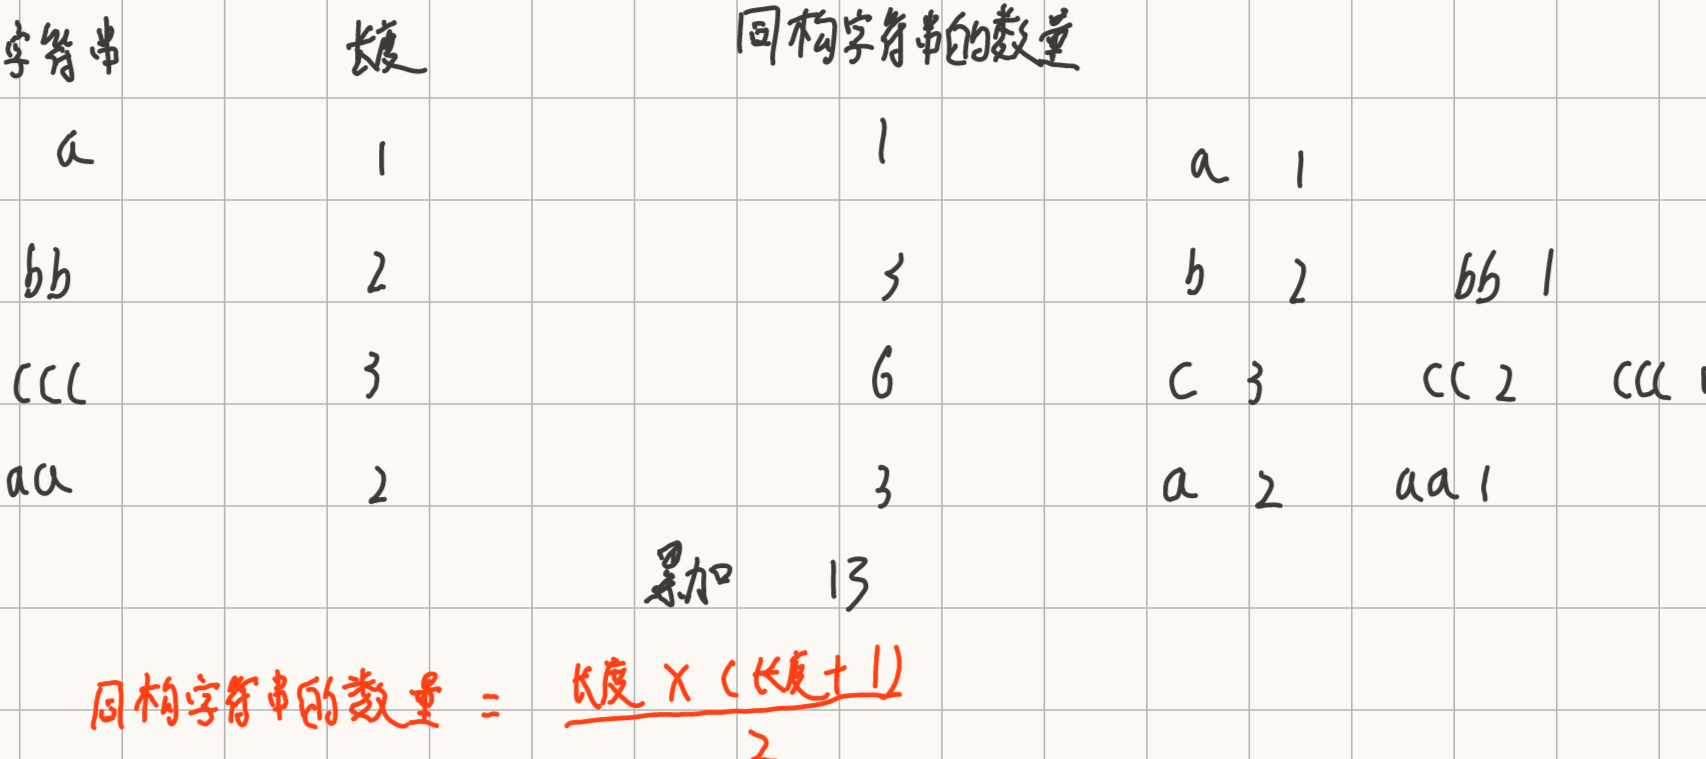 字符串 长度 同构字符串的数量
a 1 1 a 1
bb 2 3 b 2 bb 1
ccc 3 6 c 3 cc 2 ccc
aa 2 3 a 2 aa 1
累加 13
同构字符串的数量 = 长度 × (长度 + 1)
2